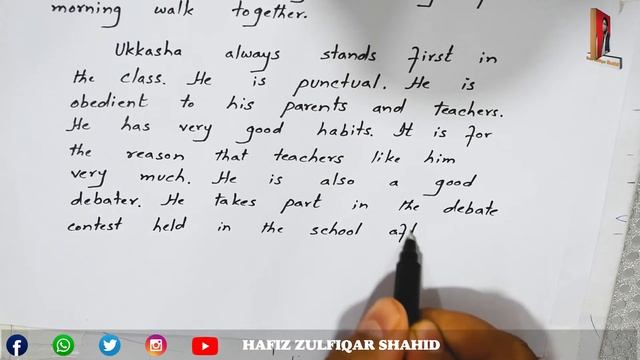 morning walk together.
Ukkasha always stands first in
the class. He is punctual. He is
obedient to his parents and teachers.
He has very good habits. It is for
the reason that teachers like him
very much. He is also a good
debater. He takes part in the debate
contest held in the school af
HAFIZ ZULFIQAR SHAHID